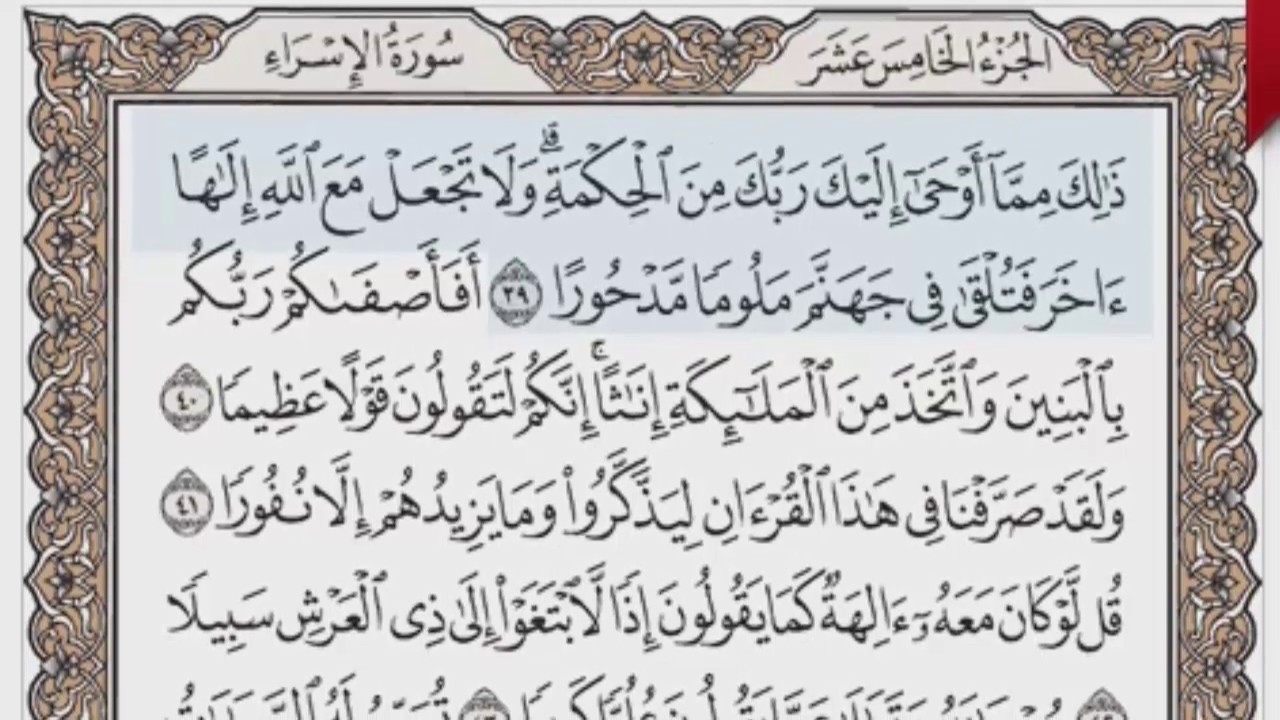 الجُزْءُ الخَامِسَ عَشَرَ
سُورَةُ الإِسْرَاءِ
ذَٰلِكَ مِمَّآ أَوْحَىٰٓ إِلَيْكَ رَبُّكَ مِنَ ٱلْحِكْمَةِۗ وَلَا تَجْعَلْ مَعَ ٱللَّهِ إِلَـٰهًا
ءَاخَرَ فَتُلْقَىٰ فِى جَهَنَّمَ مَلُومًا مَّدْحُورًا ٣٩ أَفَأَصْفَىٰكُمْ رَبُّكُم
بِٱلْبَنِينَ وَٱتَّخَذَ مِنَ ٱلْمَلَـٰٓئِكَةِ إِنَـٰثًاۚ إِنَّكُمْ لَتَقُولُونَ قَوْلًا عَظِيمًا ٤٠
وَلَقَدْ صَرَّفْنَا فِى هَـٰذَا ٱلْقُرْءَانِ لِيَذَّكَّرُوا۟ وَمَا يَزِيدُهُمْ إِلَّا نُفُورًا ٤١
قُل لَّوْ كَانَ مَعَهُۥٓ ءَالِهَةٌ كَمَا يَقُولُونَ إِذًا لَّٱبْتَغَوْا۟ إِلَىٰ ذِى ٱلْعَرْشِ سَبِيلًا